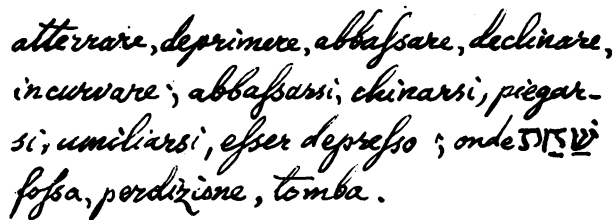 atterrare, deprimere, abbaſsare, declinare,
incurvare; abbaſsarsi, chinarsi, piegar-
si, umiliarsi, eſser depreſso; onde שַׁחַת
foſsa, perdizione, tomba.